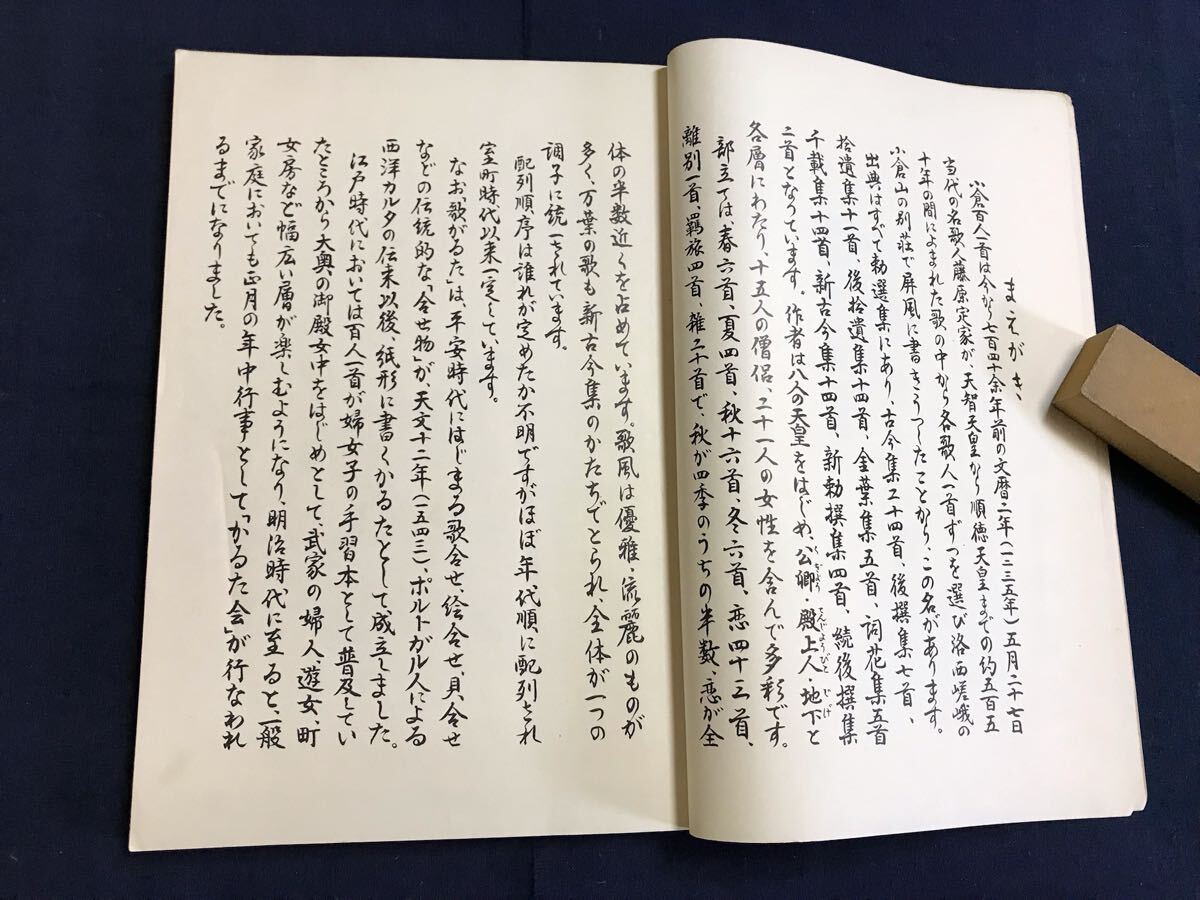 まえがき
小倉百人一首は今から七百四十余年前の文暦二年(一二三五年)五月二十七日
当代の名歌人藤原定家が、天智天皇から順徳天皇までの約五百五
十年の間によまれた歌の中から各歌人一首ずつを選び洛西嵯峨の
小倉山の別荘で屏風に書きうつしたことから、この名があります。
出典はすべて勅選集にあり、古今集二十四首、後撰集七首、
拾遺集十一首、後拾遺集十四首、金葉集五首、詞花集五首
千載集十四首、新古今集十四首、新勅撰集四首、続後撰集
二首となっています。作者は八人の天皇をはじめ、公卿・殿上人・地下と
各層にわたり、十五人の僧侶、二十一人の女性を含んで多彩です。
部立ては、春六首、夏四首、秋十六首、冬六首、恋四十三首、
離別一首、羇旅四首、雑二十首で、秋が四季のうちの半数、恋が全
体の半数近くを占めています。歌風は優雅・流麗のものが
多く、万葉の歌も新古今集のかたちでとられ、全体が一つの
調子に統一されています。
配列順序は誰れが定めたか不明ですがほぼ年代順に配列され
室町時代以来一定しています。
なお、歌がるたは、平安時代にはじまる歌合せ、絵合せ、貝合せ
などの伝統的な「合せ物」が、天文十二年(一五四三)、ポルトガル人による
西洋カルタの伝来以後、紙形に書くかるたとして成立しました。
江戸時代においては百人一首が婦女子の手習本として普及してい
たところから大奥の御殿女中をはじめとして、武家の婦人、遊女、町
女房など幅広い層が楽しむようになり、明治時代に至ると、一般
家庭においても正月の年中行事として「かるた会」が行なわれ
るまでになりました。